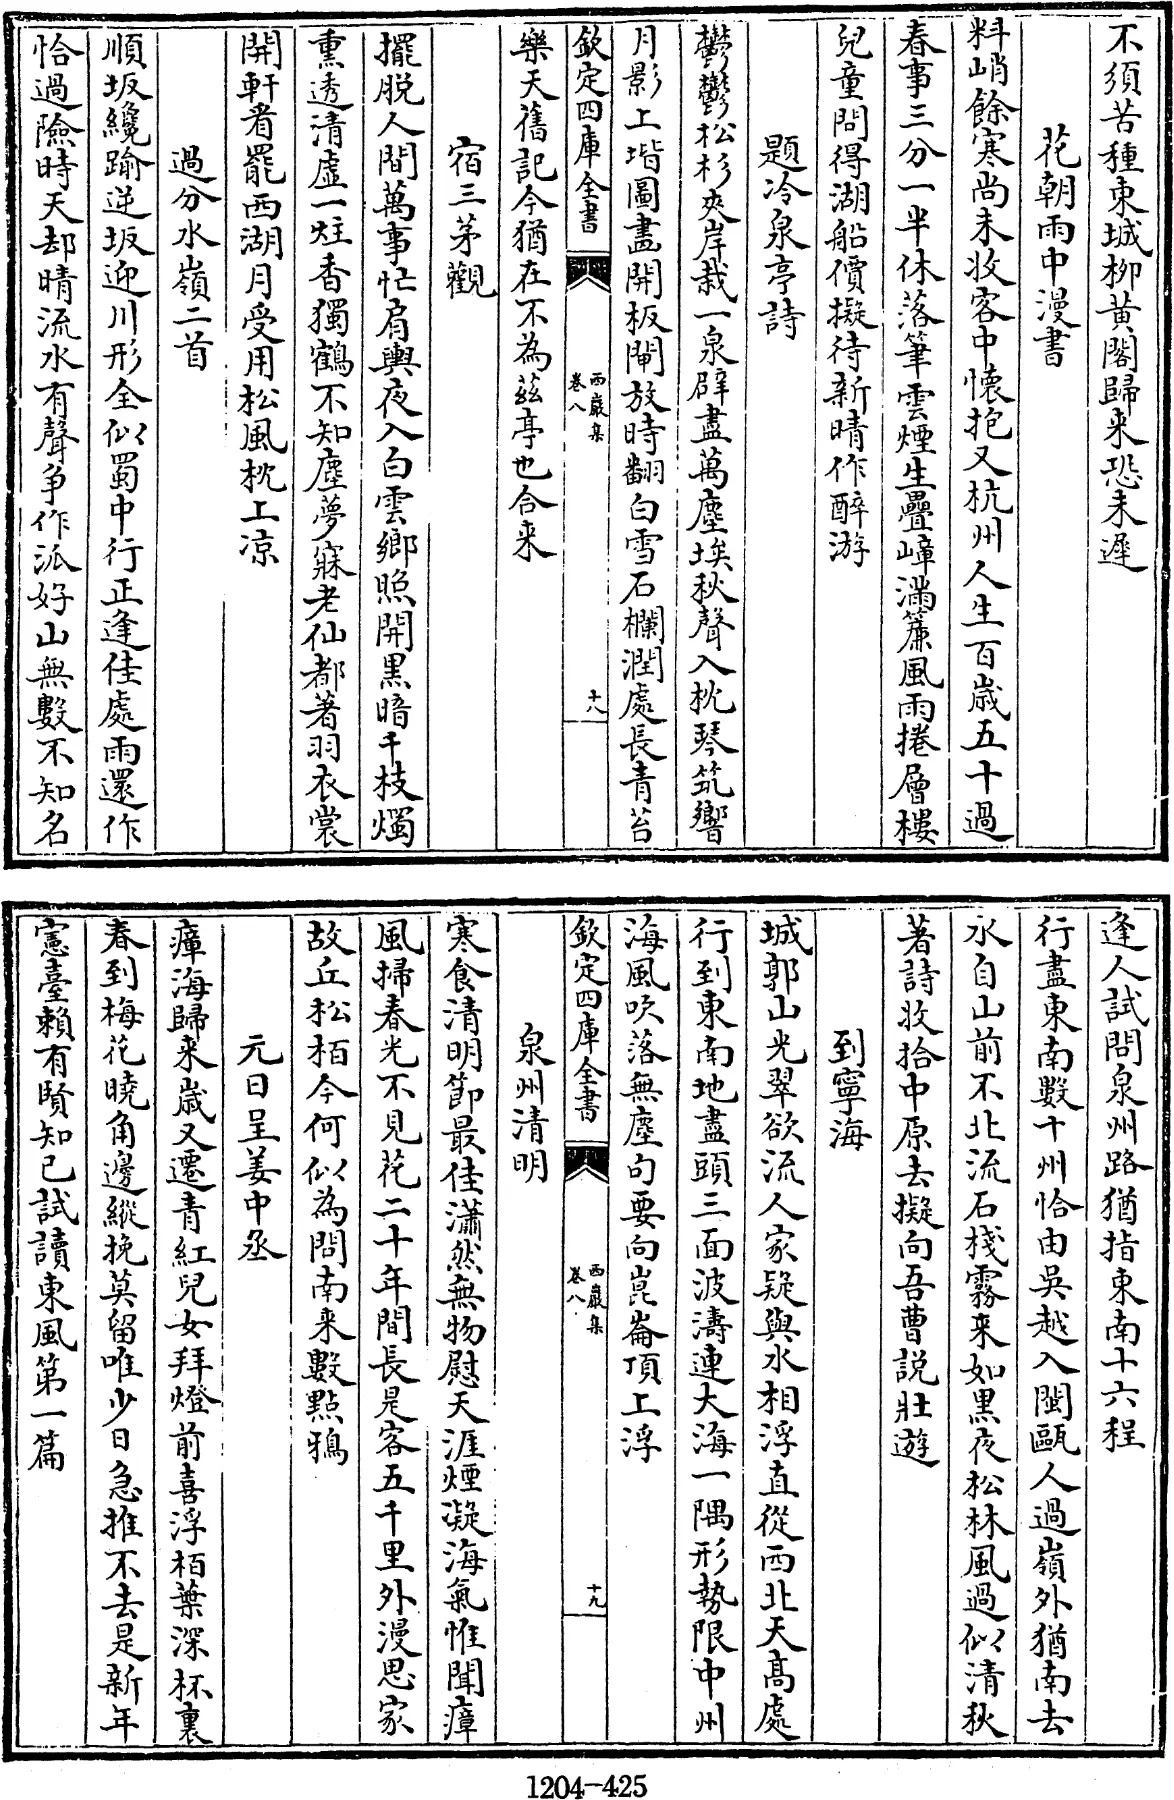 不須苦種東城柳黄閣歸来恐未遲
花朝雨中漫書
料峭餘寒尚未收客中懷抱又杭州人生百歲五十過
春事三分一半休落筆雲煙生疊嶂滿簾風雨捲層樓
兒童問得湖船價擬待新晴作醉游
題冷泉亭詩
鬱鬱松杉夾岸栽一泉辟盡萬塵埃秋聲入枕琴筑響
月影上堦圖畫開板閘放時翻白雪石欄潤處長青苔
欽定四庫全書
西巖集
卷八
十八
樂天舊記今猶在不為茲亭也合来
宿三茅觀
擺脱人間萬事忙肩輿夜入白雲鄉照開黒暗千枝燭
熏透清虛一炷香獨鶴不知塵夢寐老仙都著羽衣裳
開軒看罷西湖月受用松風枕上凉
過分水嶺二首
順坂纔踰逆坂迎川形全似蜀中行正逢佳處雨還作
恰過險時天却晴流水有聲争作派好山無數不知名
逢人試問泉州路猶指東南十六程
行盡東南數十州恰由吳越入閩甌人過嶺外猶南去
水自山前不北流石棧霧来如黒夜松林風過似清秋
著詩收拾中原去擬向吾曹説壯遊
到寧海
城郭山光翠欲流人家疑與水相浮直從西北天髙處
行到東南地盡頭三面波濤連大海一隅形勢限中州
海風吹落無塵句要向崑崙頂上浮
欽定四庫全書
西巖集
卷八
十九
泉州清明
寒食清明節最佳瀟然無物慰天涯煙凝海氣惟聞瘴
風掃春光不見花二十年間長是客五千里外漫思家
故丘松栢今何似為問南来數點鴉
元日呈姜中丞
瘴海歸来歲又遷青紅兒女拜燈前喜浮栢葉深杯裏
春到梅花曉角邊縱挽莫留唯少日急推不去是新年
憲臺賴有賢知己試讀東風第一篇
1204-425